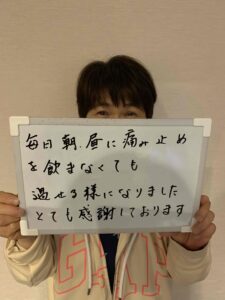 毎日朝、昼に痛み止め
を飲まなくても
過せる様になりました
とても感謝しております
GAP